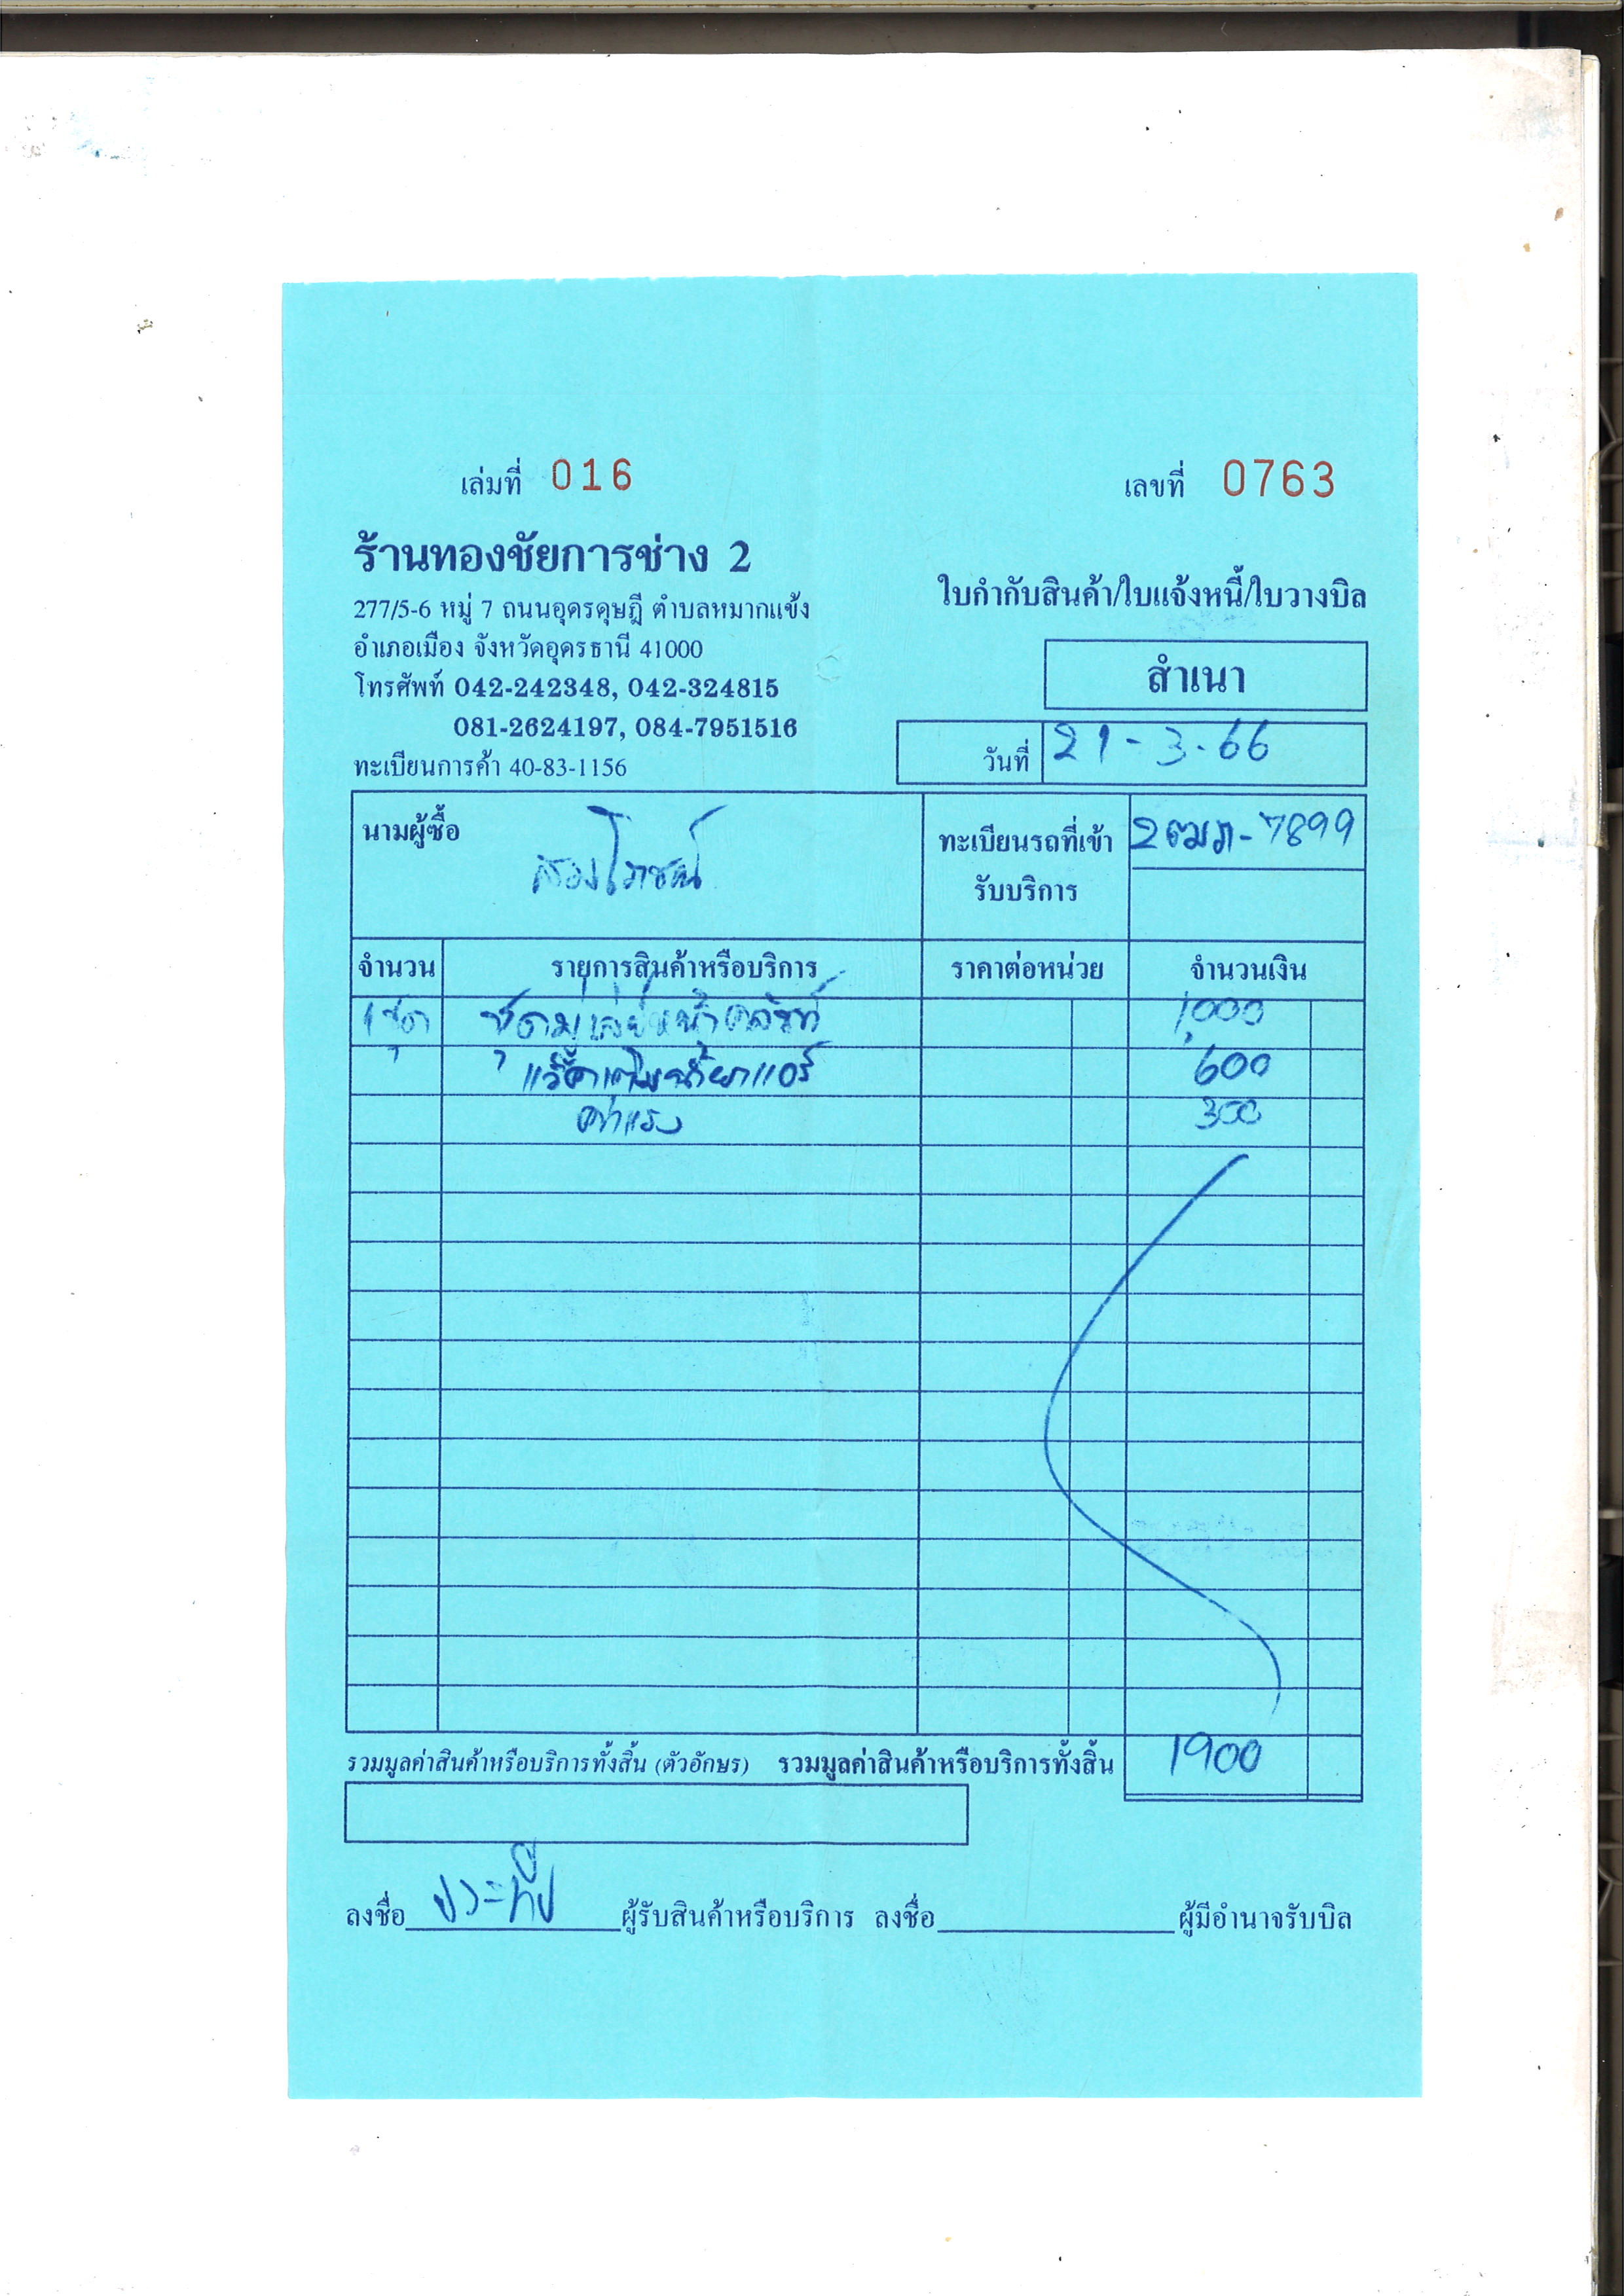 เล่มที่ 016 เลขที่ 0763
ร้านทองชัยการช่าง 2
277/5-6 หมู่ 7 ถนนอุดรดุษฎี ตำบลหมากแข้ง
อำเภอเมือง จังหวัดอุดรธานี 41000
โทรศัพท์ 042-242348, 042-324815
081-2624197, 084-7951516
ทะเบียนการค้า 40-83-1156
ใบกำกับสินค้า/ใบแจ้งหนี้/ใบวางบิล
สำเนา
วันที่ 21-3-66
นามผู้ซื้อ
ทะเบียนรถที่เข้า 2ฒภ-7899
รับบริการ
จำนวน รายการสินค้าหรือบริการ ราคาต่อหน่วย จำนวนเงิน
1 ชุด ชุดมู่เล่ย์หน้าคลัชท์ 1,000
แว๊คเติมน้ำยาแอร์ 600
ค่าแรง 300
รวมมูลค่าสินค้าหรือบริการทั้งสิ้น (ตัวอักษร) รวมมูลค่าสินค้าหรือบริการทั้งสิ้น 1900
ลงชื่อ ประทีป ผู้รับสินค้าหรือบริการ ลงชื่อ ผู้มีอำนาจรับบิล